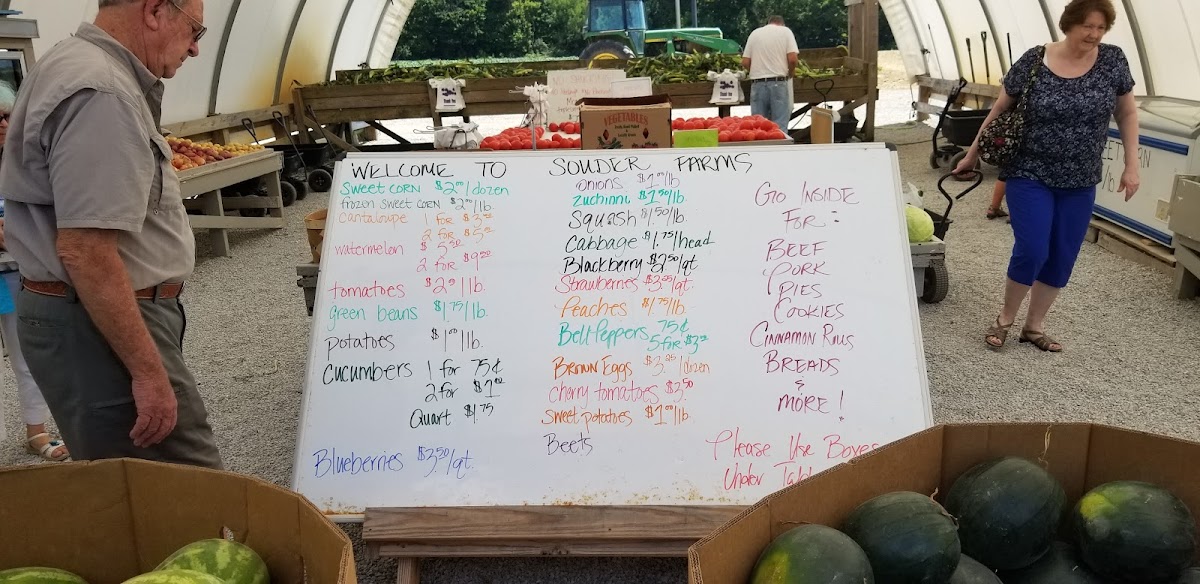 VEGETABLES
WELCOME TO SOUDER FARMS
Sweet corn $2.00/dozen
frozen sweet corn $2.00/lb.
cantaloupe 1 for $3.
2 for $5.
watermelon $5.50
2 for $9.
tomatoes $2.00/lb.
green beans $1.75/lb.
potatoes $1.00/lb.
cucumbers 1 for 75¢
2 for $1.
Quart $1.75
Blueberries $3.50/qt.
onions $1.00/lb
zuchinni $1.50/lb.
Squash $1.50/lb.
Cabbage $1.75/head
Blackberry $2.50/qt
Strawberries $3.25/qt.
Peaches $1.75/lb.
Bell Peppers 75¢
5 for $3.
Brown Eggs $3.25/dozen
cherry tomatoes $3.50
Sweet potatoes $1.00/lb.
Beets
Go Inside
For:
Beef
Pork
Pies
Cookies
Cinnamon Rolls
Breads
&
more!
Please Use Boxes
Under